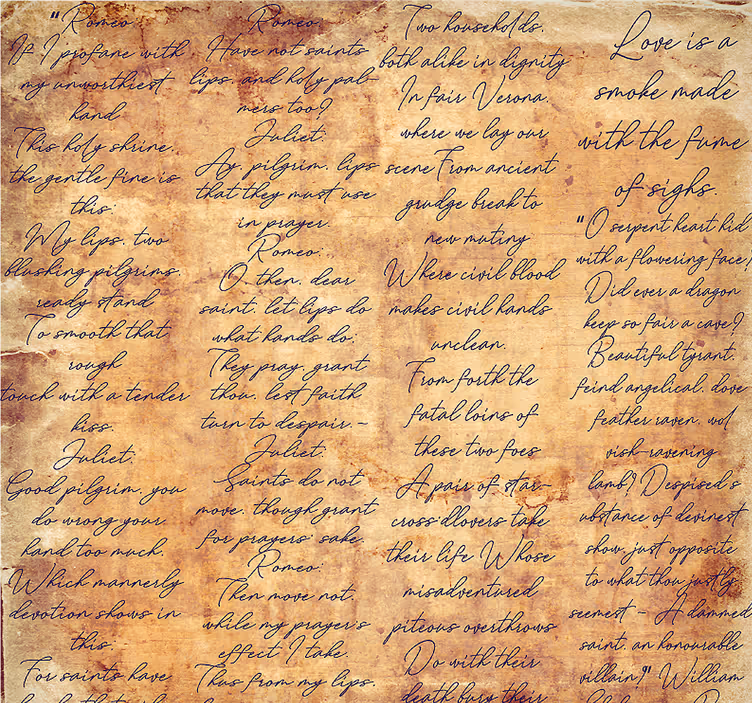 "Romeo:
If I profane with
my unworthiest
hand
This holy shrine,
the gentle fine is
this:
My lips, two
blushing pilgrims,
ready stand
To smooth that
rough
touch with a tender
kiss.
Juliet:
Good pilgrim, you
do wrong your
hand too much,
Which mannerly
devotion shows in
this
For saints have
Romeo:
Have not saints
lips, and holy pal-
mers too?
Juliet:
Ay, pilgrim, lips
that they must use
in prayer.
Romeo:
O then, dear
saint, let lips do
what hands do;
They pray, grant
thou, lest faith
turn to despair. -
Juliet:
Saints do not
move, though grant
for prayers' sake.
Romeo:
Then move not,
while my prayer's
effect I take.
Thus from my lips,
Two households,
both alike in dignity
In fair Verona,
where we lay our
scene From ancient
grudge break to
new mutiny
Where civil blood
makes civil hands
unclean.
From forth the
fatal loins of
these two foes
A pair of star-
cross'dlovers take
their life Whose
misadventured
piteous overthrows
Do with their
death bury their
Love is a
smoke made
with the fume
of sighs.
"O serpent heart hid
with a flowering face!
Did ever a dragon
keep so fair a cave?
Beautiful tyrant,
feind angelical, dove
feather raven, wol
vish-ravening
lamb! Despised s
ubstance of devinest
show, just opposite
to what thou justly
seemest - A damned
saint, an honourable
villain!" William